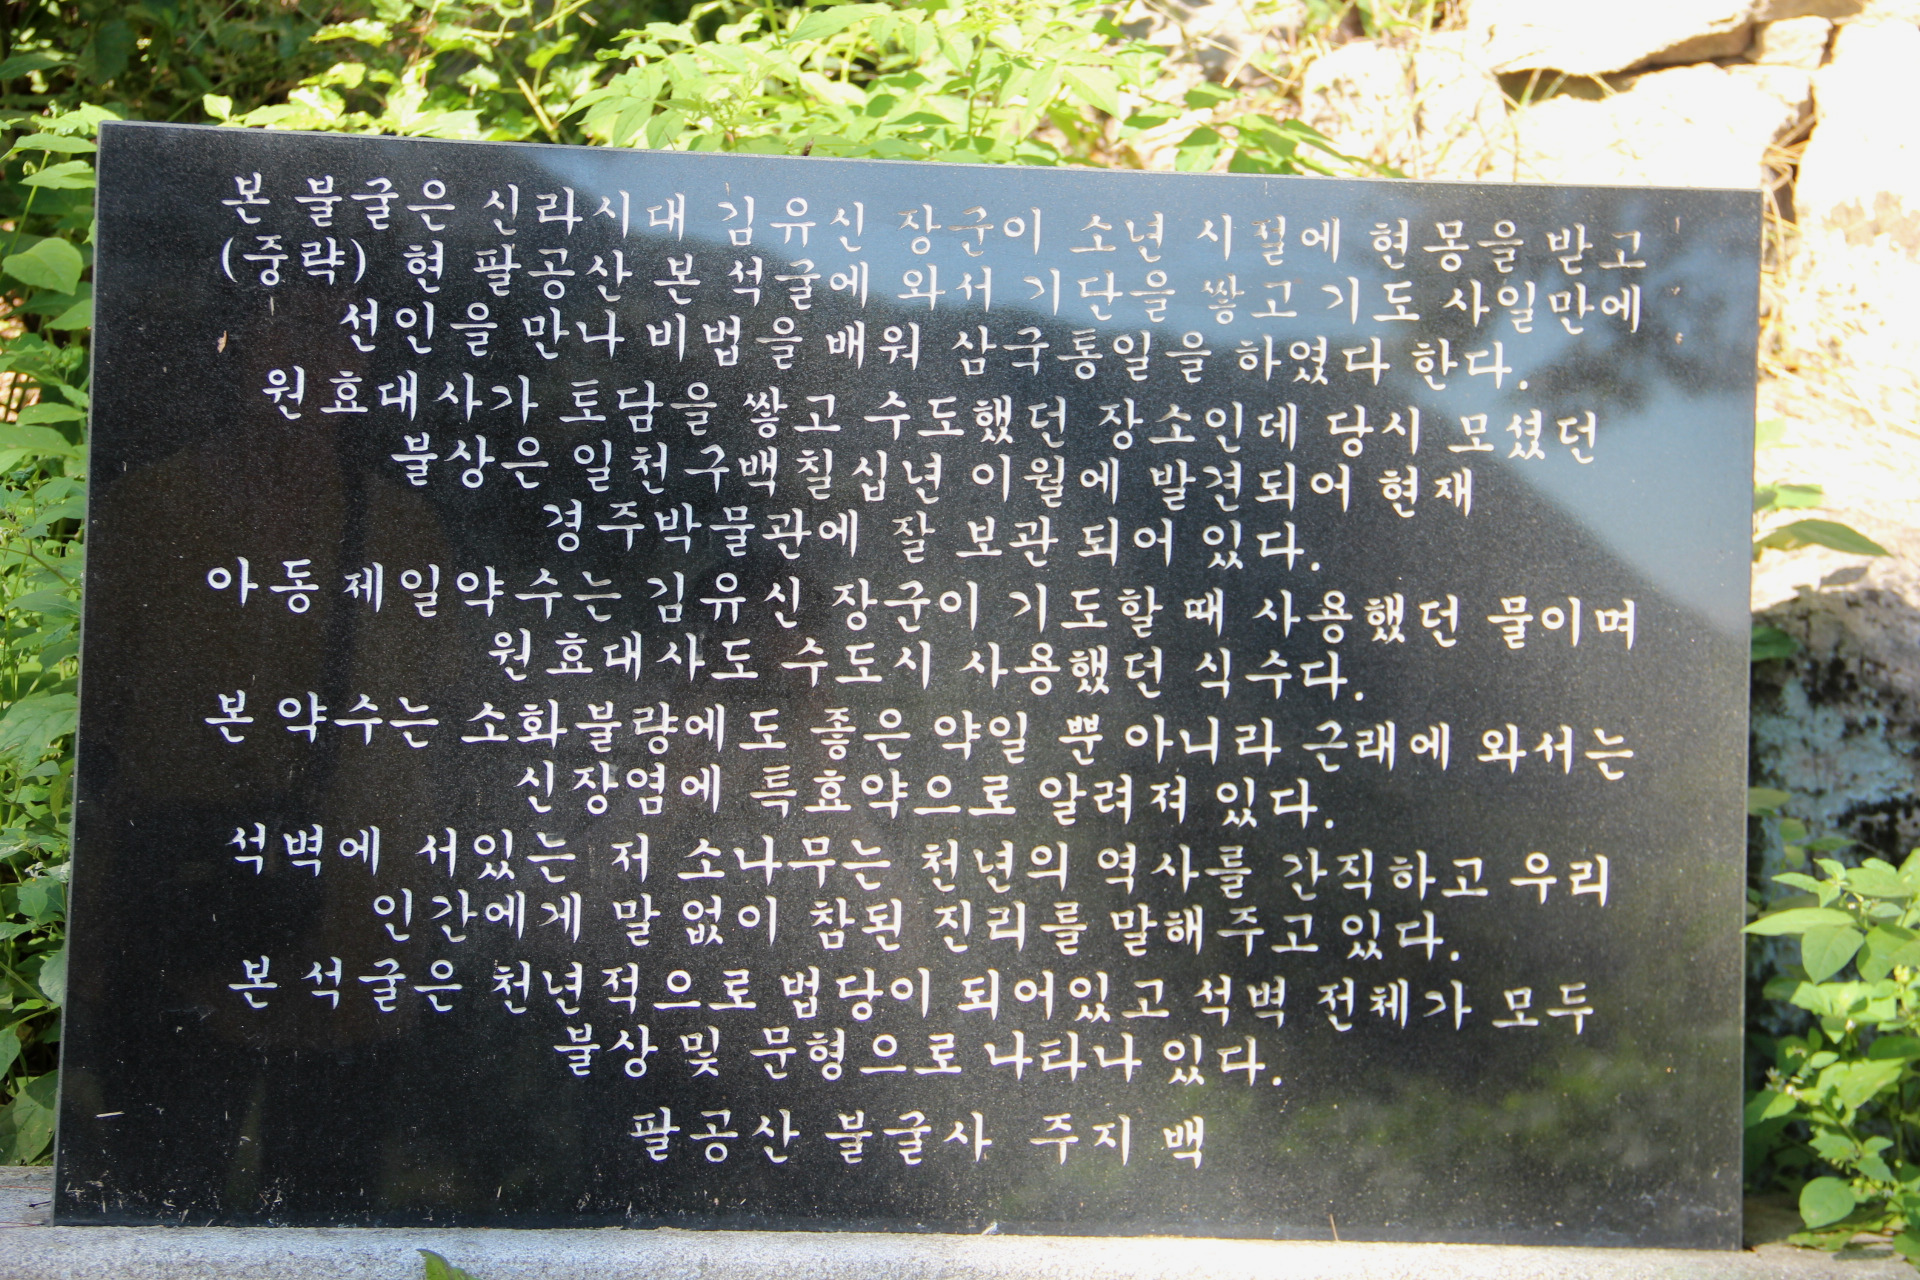 본 불굴은 신라시대 김유신 장군이 소년 시절에 현몽을 받고
(중략) 현 팔공산 본 석굴에 와서 기단을 쌓고 기도 사일만에
선인을 만나 비법을 배워 삼국통일을 하였다 한다.
원효대사가 토담을 쌓고 수도했던 장소인데 당시 모셨던
불상은 일천구백칠십년 이월에 발견되어 현재
경주박물관에 잘 보관 되어 있다.
아동제일약수는 김유신 장군이 기도할 때 사용했던 물이며
원효대사도 수도시 사용했던 식수다.
본 약수는 소화불량에도 좋은 약일 뿐 아니라 근래에 와서는
신장염에 특효약으로 알려져 있다.
석벽에 서있는 저 소나무는 천년의 역사를 간직하고 우리
인간에게 말없이 참된 진리를 말해주고 있다.
본 석굴은 천년적으로 법당이 되어있고 석벽 전체가 모두
불상 및 문형으로 나타나 있다.
팔공산 불굴사 주지 백